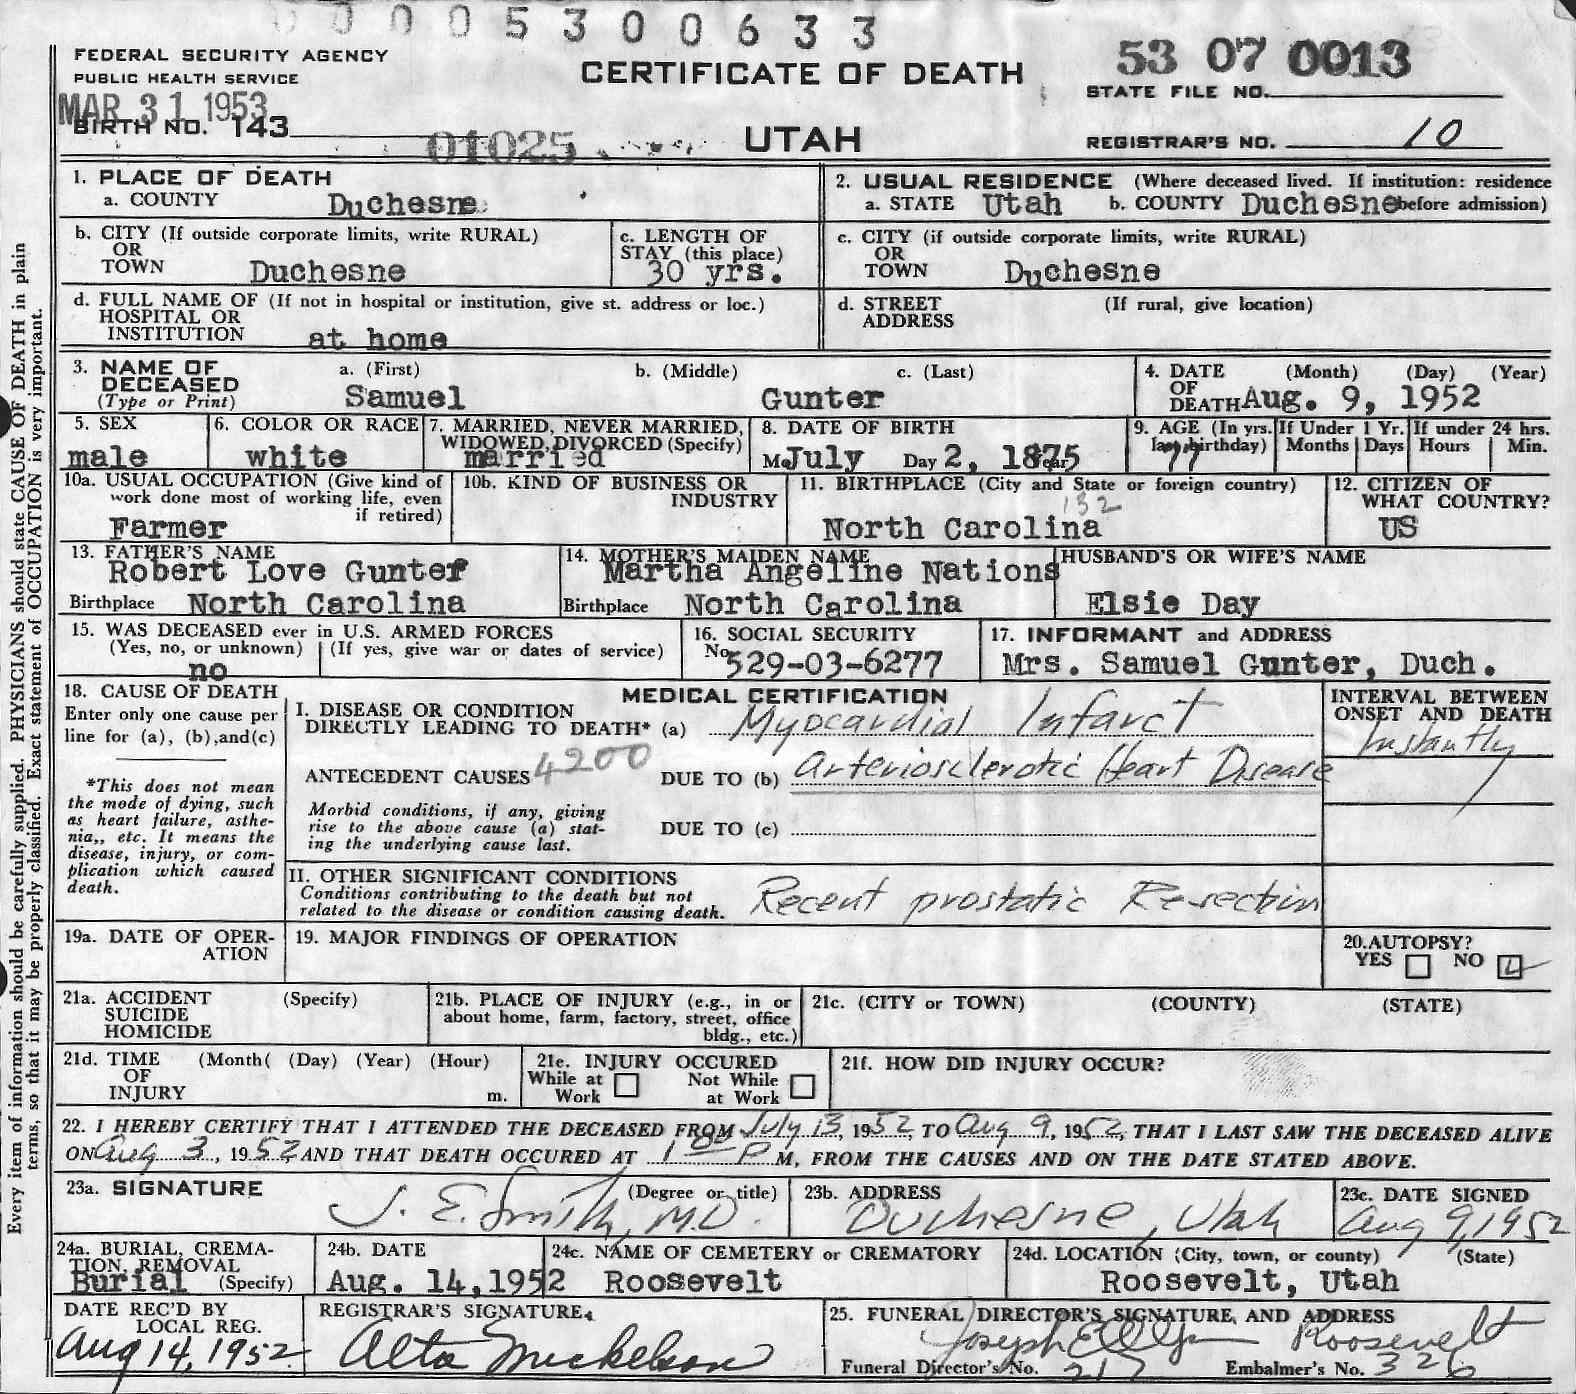 0005300633
FEDERAL SECURITY AGENCY
PUBLIC HEALTH SERVICE
CERTIFICATE OF DEATH
53 07 0013
STATE FILE NO.
MAR 31 1953
BIRTH NO. 143
01025
UTAH
REGISTRAR'S NO. 10
1. PLACE OF DEATH
a. COUNTY Duchesne
2. USUAL RESIDENCE (Where deceased lived. If institution: residence before admission)
a. STATE Utah b. COUNTY Duchesne
b. CITY (If outside corporate limits, write RURAL)
OR
TOWN Duchesne
c. LENGTH OF
STAY (this place)
30 yrs.
c. CITY (if outside corporate limits, write RURAL)
OR
TOWN Duchesne
d. FULL NAME OF (If not in hospital or institution, give st. address or loc.)
HOSPITAL OR
INSTITUTION at home
d. STREET (If rural, give location)
ADDRESS
3. NAME OF
DECEASED
(Type or Print)
a. (First) b. (Middle) c. (Last)
Samuel Gunter
4. DATE (Month) (Day) (Year)
OF
DEATH Aug. 9, 1952
5. SEX
male
6. COLOR OR RACE
white
7. MARRIED, NEVER MARRIED,
WIDOWED, DIVORCED (Specify)
married
8. DATE OF BIRTH
July Day 2, 1875
9. AGE (In yrs. last birthday)
77
If Under 1 Yr.
Months Days
If under 24 hrs.
Hours Min.
10a. USUAL OCCUPATION (Give kind of
work done most of working life, even
if retired)
Farmer
10b. KIND OF BUSINESS OR
INDUSTRY
11. BIRTHPLACE (City and State or foreign country)
132
North Carolina
12. CITIZEN OF
WHAT COUNTRY?
US
13. FATHER'S NAME
Robert Love Gunter
Birthplace North Carolina
14. MOTHER'S MAIDEN NAME
Martha Angeline Nations
Birthplace North Carolina
HUSBAND'S OR WIFE'S NAME
Elsie Day
15. WAS DECEASED ever in U.S. ARMED FORCES
(Yes, no, or unknown) (If yes, give war or dates of service)
no
16. SOCIAL SECURITY
No. 529-03-6277
17. INFORMANT and ADDRESS
Mrs. Samuel Gunter, Duch.
18. CAUSE OF DEATH
Enter only one cause per
line for (a), (b),and(c)
*This does not mean
the mode of dying, such
as heart failure, asthe-
nia,, etc. It means the
disease, injury, or com-
plication which caused
death.
MEDICAL CERTIFICATION
I. DISEASE OR CONDITION
DIRECTLY LEADING TO DEATH* (a) Myocardial Infarct
ANTECEDENT CAUSES 4200 DUE TO (b) Arteriosclerotic Heart Disease
Morbid conditions, if any, giving
rise to the above cause (a) stat-
ing the underlying cause last.
DUE TO (c)
INTERVAL BETWEEN
ONSET AND DEATH
Instantly
II. OTHER SIGNIFICANT CONDITIONS
Conditions contributing to the death but not
related to the disease or condition causing death.
Recent prostatic Resection
19a. DATE OF OPER-
ATION
19. MAJOR FINDINGS OF OPERATION
20. AUTOPSY?
YES NO
21a. ACCIDENT (Specify)
SUICIDE
HOMICIDE
21b. PLACE OF INJURY (e.g., in or
about home, farm, factory, street, office
bldg., etc.)
21c. (CITY or TOWN) (COUNTY) (STATE)
21d. TIME (Month( (Day) (Year) (Hour)
OF
INJURY m.
21e. INJURY OCCURED
While at Work Not While at Work
21f. HOW DID INJURY OCCUR?
22. I HEREBY CERTIFY THAT I ATTENDED THE DECEASED FROM July 13, 1952, TO Aug 9, 1952, THAT I LAST SAW THE DECEASED ALIVE
ON Aug 3, 1952 AND THAT DEATH OCCURED AT 1 00 P M, FROM THE CAUSES AND ON THE DATE STATED ABOVE.
23a. SIGNATURE (Degree or title)
J. E. Smith, M.D.
23b. ADDRESS
Duchesne, Utah
23c. DATE SIGNED
Aug 9, 1952
24a. BURIAL, CREMA-
TION, REMOVAL
Burial (Specify)
24b. DATE
Aug. 14, 1952
24c. NAME OF CEMETERY or CREMATORY
Roosevelt
24d. LOCATION (City, town, or county) (State)
Roosevelt, Utah
DATE REC'D BY
LOCAL REG.
Aug 14, 1952
REGISTRAR'S SIGNATURE
Alta Mickelson
25. FUNERAL DIRECTOR'S SIGNATURE, AND ADDRESS
Joseph Roosevelt
Funeral Director's No. 217 Embalmer's No. 326
Every item of information should be carefully supplied. PHYSICIANS should state CAUSE OF DEATH in plain
terms, so that it may be properly classified. Exact statement of OCCUPATION is very important.